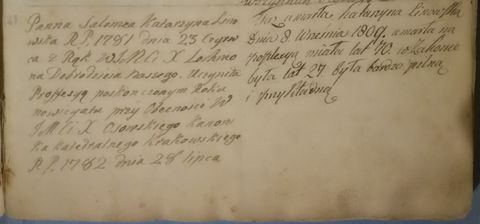 Panna Salomea Katarzyna Lino
wska R.P. 1781 dnia 23 Czerw
ca z Rąk WJMCi X Lochmo
na Dobrodzieia Naszego. Uczyniła
Professyą poskonczonym Roku
nowicyatu przy Obecnosci W
JMCi X Osowskiego Kanoni
ka Katedralnego Krakowskiego
R.P. 1782 dnia 28 lipca
Taż zmarła Katarzyna Linowska
dnia 8 Wrzesnia 1809. zmarła na
miała lat 70. w Zakonie
była lat 27 była bardzo pilną
i przykładną